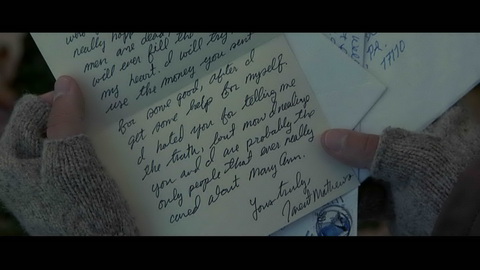 who
really happ
men are dead
will ever fill the
my heart. I will try
use the money you sent
for some good, after I
get some help for myself.
I hated you for telling me
the truth, but now I realize
you and I are probably the
only people that ever really
cared about Mary Ann.
Yours truly,
Janet Mathews
P.R.
17710